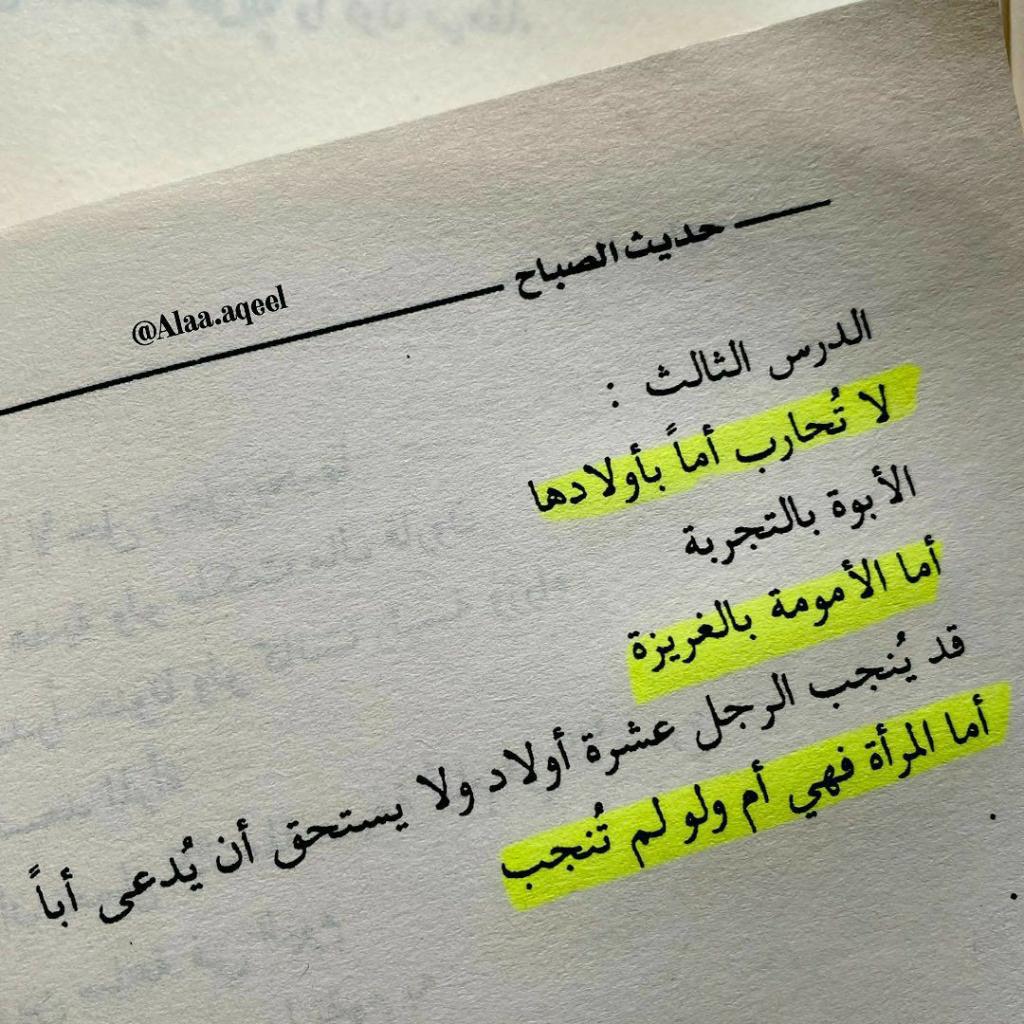 حديث الصباح
@Alaa.aqeel
الدرس الثالث :
لا تُحارب أماً بأولادها
الأبوة بالتجربة
أما الأمومة بالغريزة
قد يُنجب الرجل عشرة أولاد ولا يستحق أن يُدعى أباً
أما المرأة فهي أم ولو لم تُنجب